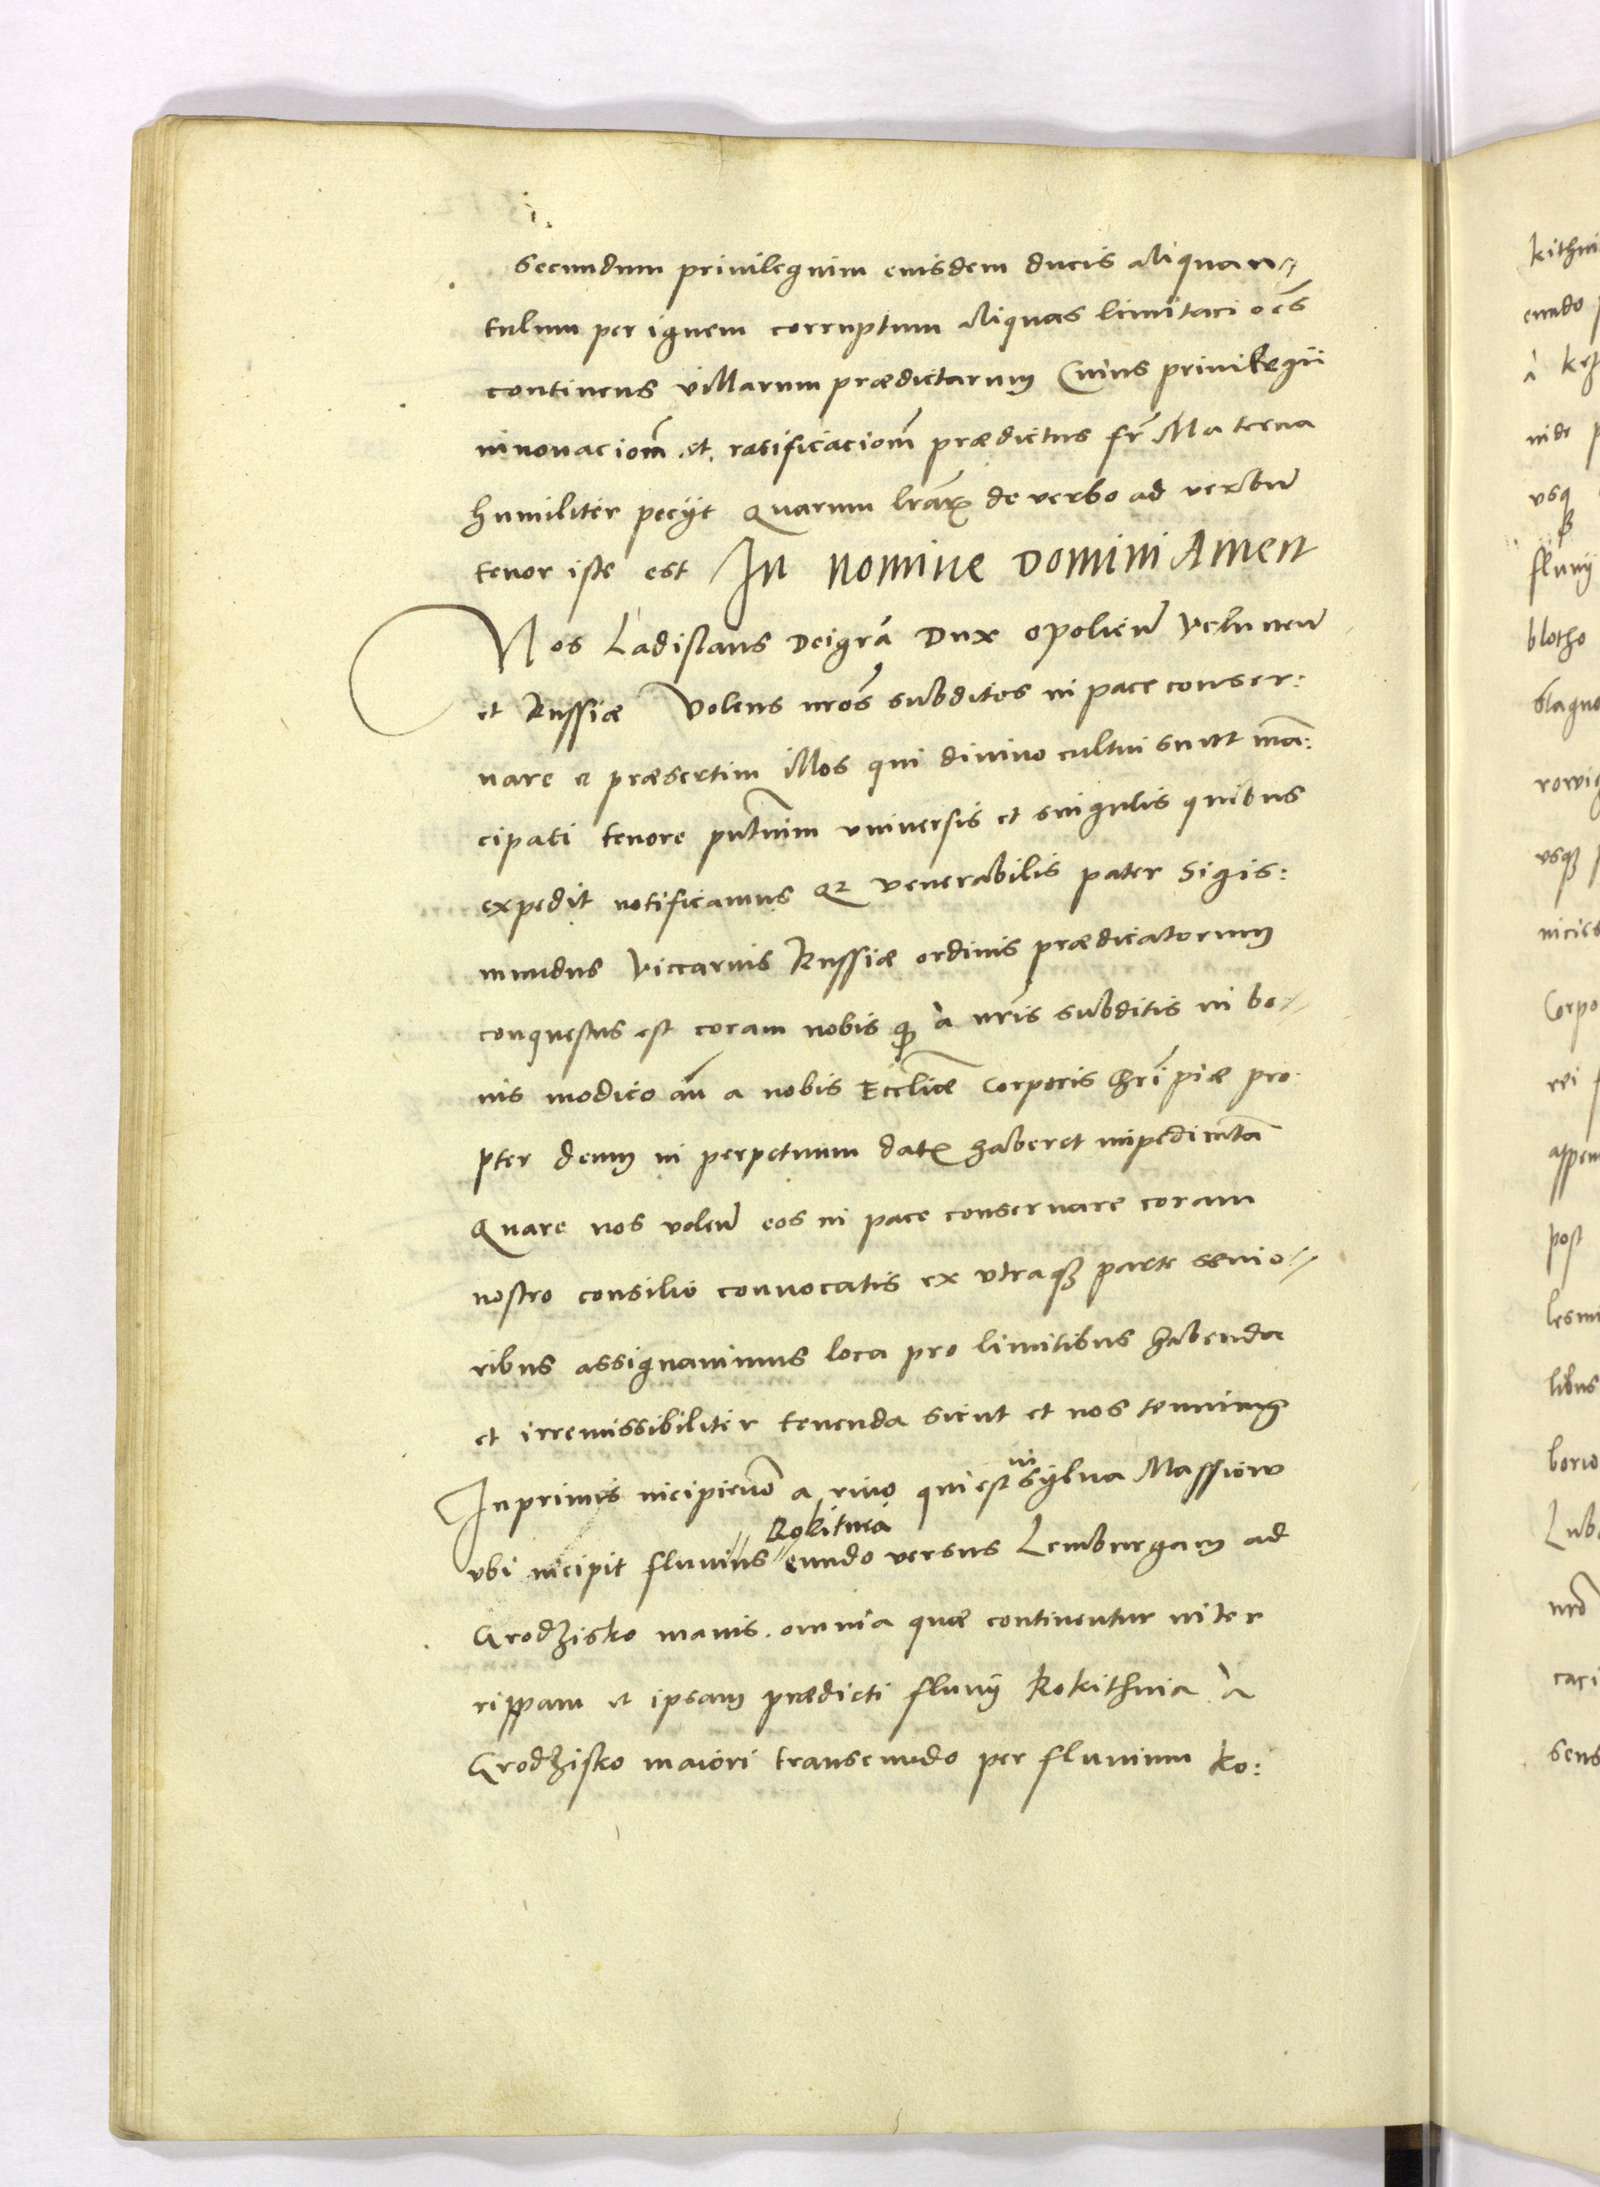 secundum priuilegium euisdem ducis aliquan-
tulum per ignem corruptum aliquas limitacioēs
continens villarum prædictarum Cuius priuilegii
innouaciom̄ et ratificaciom̄ prædictus fr̄ Materna
humiliter peciјt Quarum lrarꝝ de verbo ad verbū
tenor iste est In nomine Domini Amen
Nos Ladislaus Dei grā Dux opolien̄ Velunen̄
et Russiæ Volens nrōs subditos in pace conser:
uare et præsertim illos qui diuino cultui sunt mā:
cipati tenore pn̄tium vniuersis et singulis quibus
expedit notificamus qꝛ venerabilis pater Sigis:
mundus Viccarius Russiæ ordinis prædicatorum
conquestus est coram nobis qꝫ à nrīs subditis in bo-
nis modico an̄ a nobis Eccl̄iæ Corporis Chrī piæ pro
pter deum in perpetuum datꝭ haberet impedimētā
Quare nos volen̄ eos in pace conseruare coram
nostro consilio conuocatis ex vtraqꝫ parte senio-
ribus assignauimus loca pro limitibus habenda
et irremissibiliter tenenda sicut et nos tenuimꝰ
Inprimis incipiendō a riuo qui est in sylua Massiow
vbi incipit fluuius Rokitnia eundo versus Lemburgam ad
Grodzisko maius omnia quæ continentur inter
rippam et ipsam prædicti fluuij Rokithnia à
Grodzisko maiori transeundo per fluuium Ro:
kithni
eundo
à
inde
vsqꝫ
fluuij
blotho
stagno
vsqꝫ
Corpo
rei
appen
post
lesni
libus
Lub
nrō
caci
sens